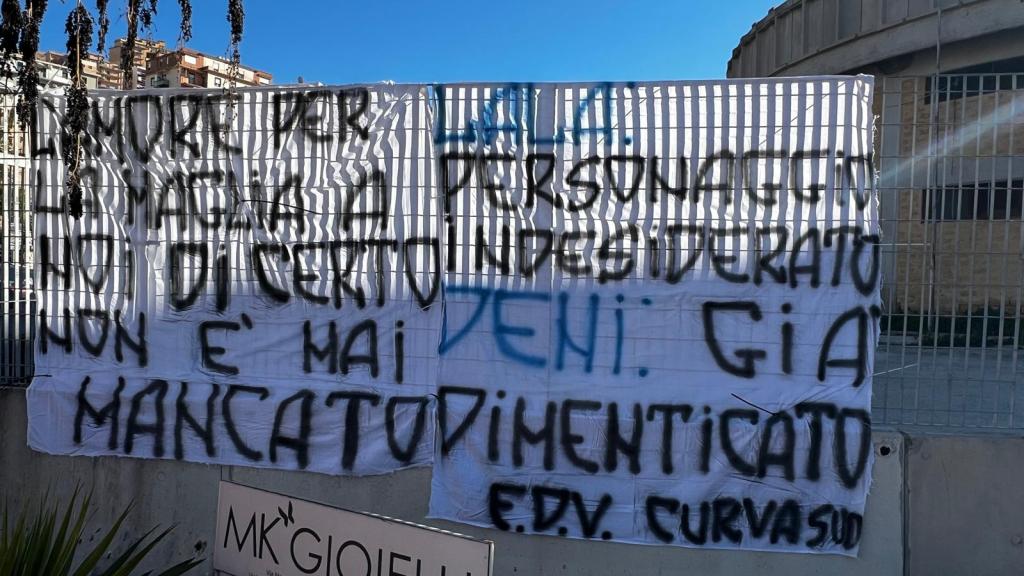 L'AMORE PER
LA MAGLIA A
NOI DI CERTO
NON E' MAI
MANCATO
LALA:
PERSONAGGIO
INDESIDERATO
DEMI: GIA'
DIMENTICATO
E.D.V. CURVA SUD
MK GIOIELLI